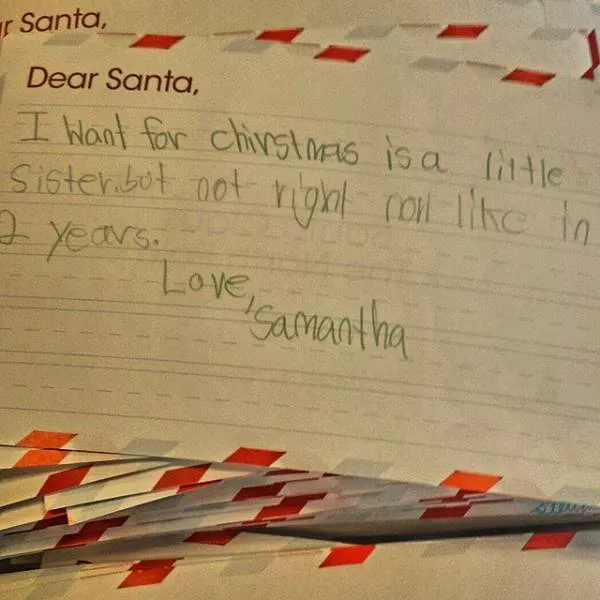 r Santa,
Dear Santa,
I Want for chirstmas is a little
Sister.but not right now like in
2 years.
Love,
Samantha